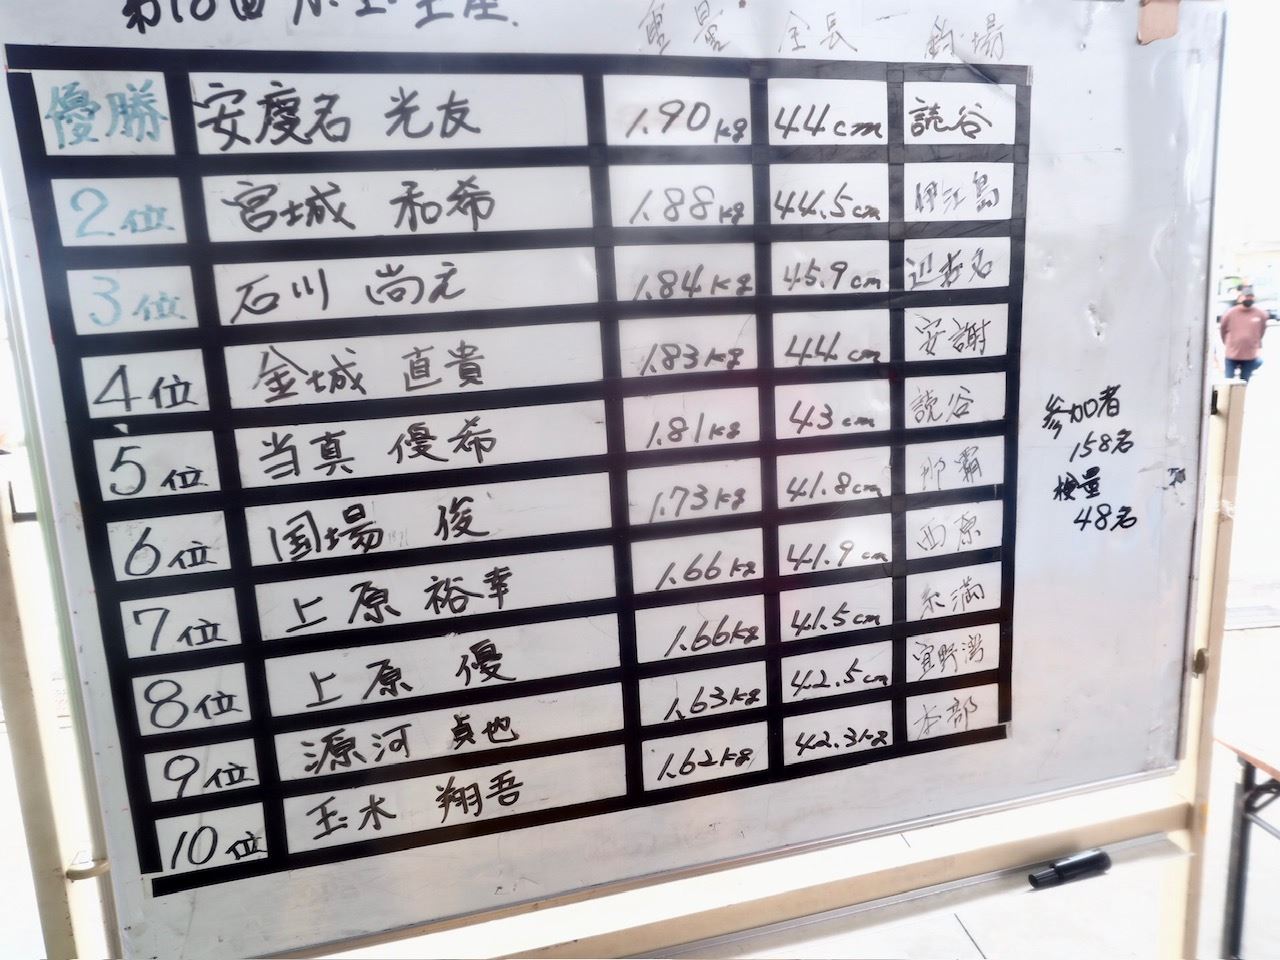 第18回
重量 全長 釣場
優勝 安慶名 光友 1.90kg 44cm 読谷
2位 宮城 和希 1.88kg 44.5cm 伊江島
3位 石川 尚元 1.84kg 45.9cm
4位 金城 直貴 1.83kg 44cm 安謝
5位 当真 優希 1.81kg 43cm 読谷
6位 国場 俊 1.73kg 41.8cm 那覇
7位 上原 裕幸 1.66kg 41.9cm 西原
8位 上原 優 1.66kg 41.5cm 糸満
9位 源河 貞也 1.63kg 42.5cm 宜野湾
10位 玉木 翔吾 1.62kg 42.3kg 本部
参加者
158名
検量
48名